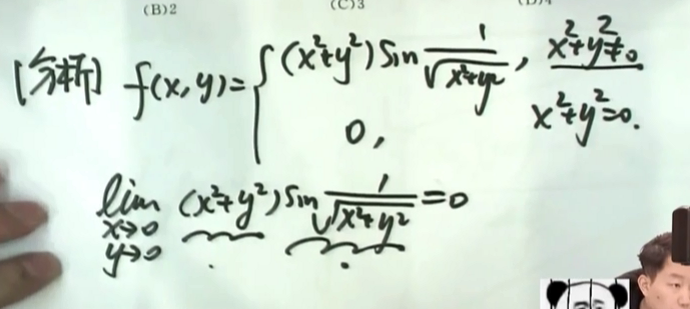 (B)2 (C)3
[分析] f(x,y)={(x²+y²)sin 1/√(x²+y²), x²+y²≠0
0, x²+y²=0.
lim (x²+y²)sin 1/√(x²+y²) =0
x→0
y→0